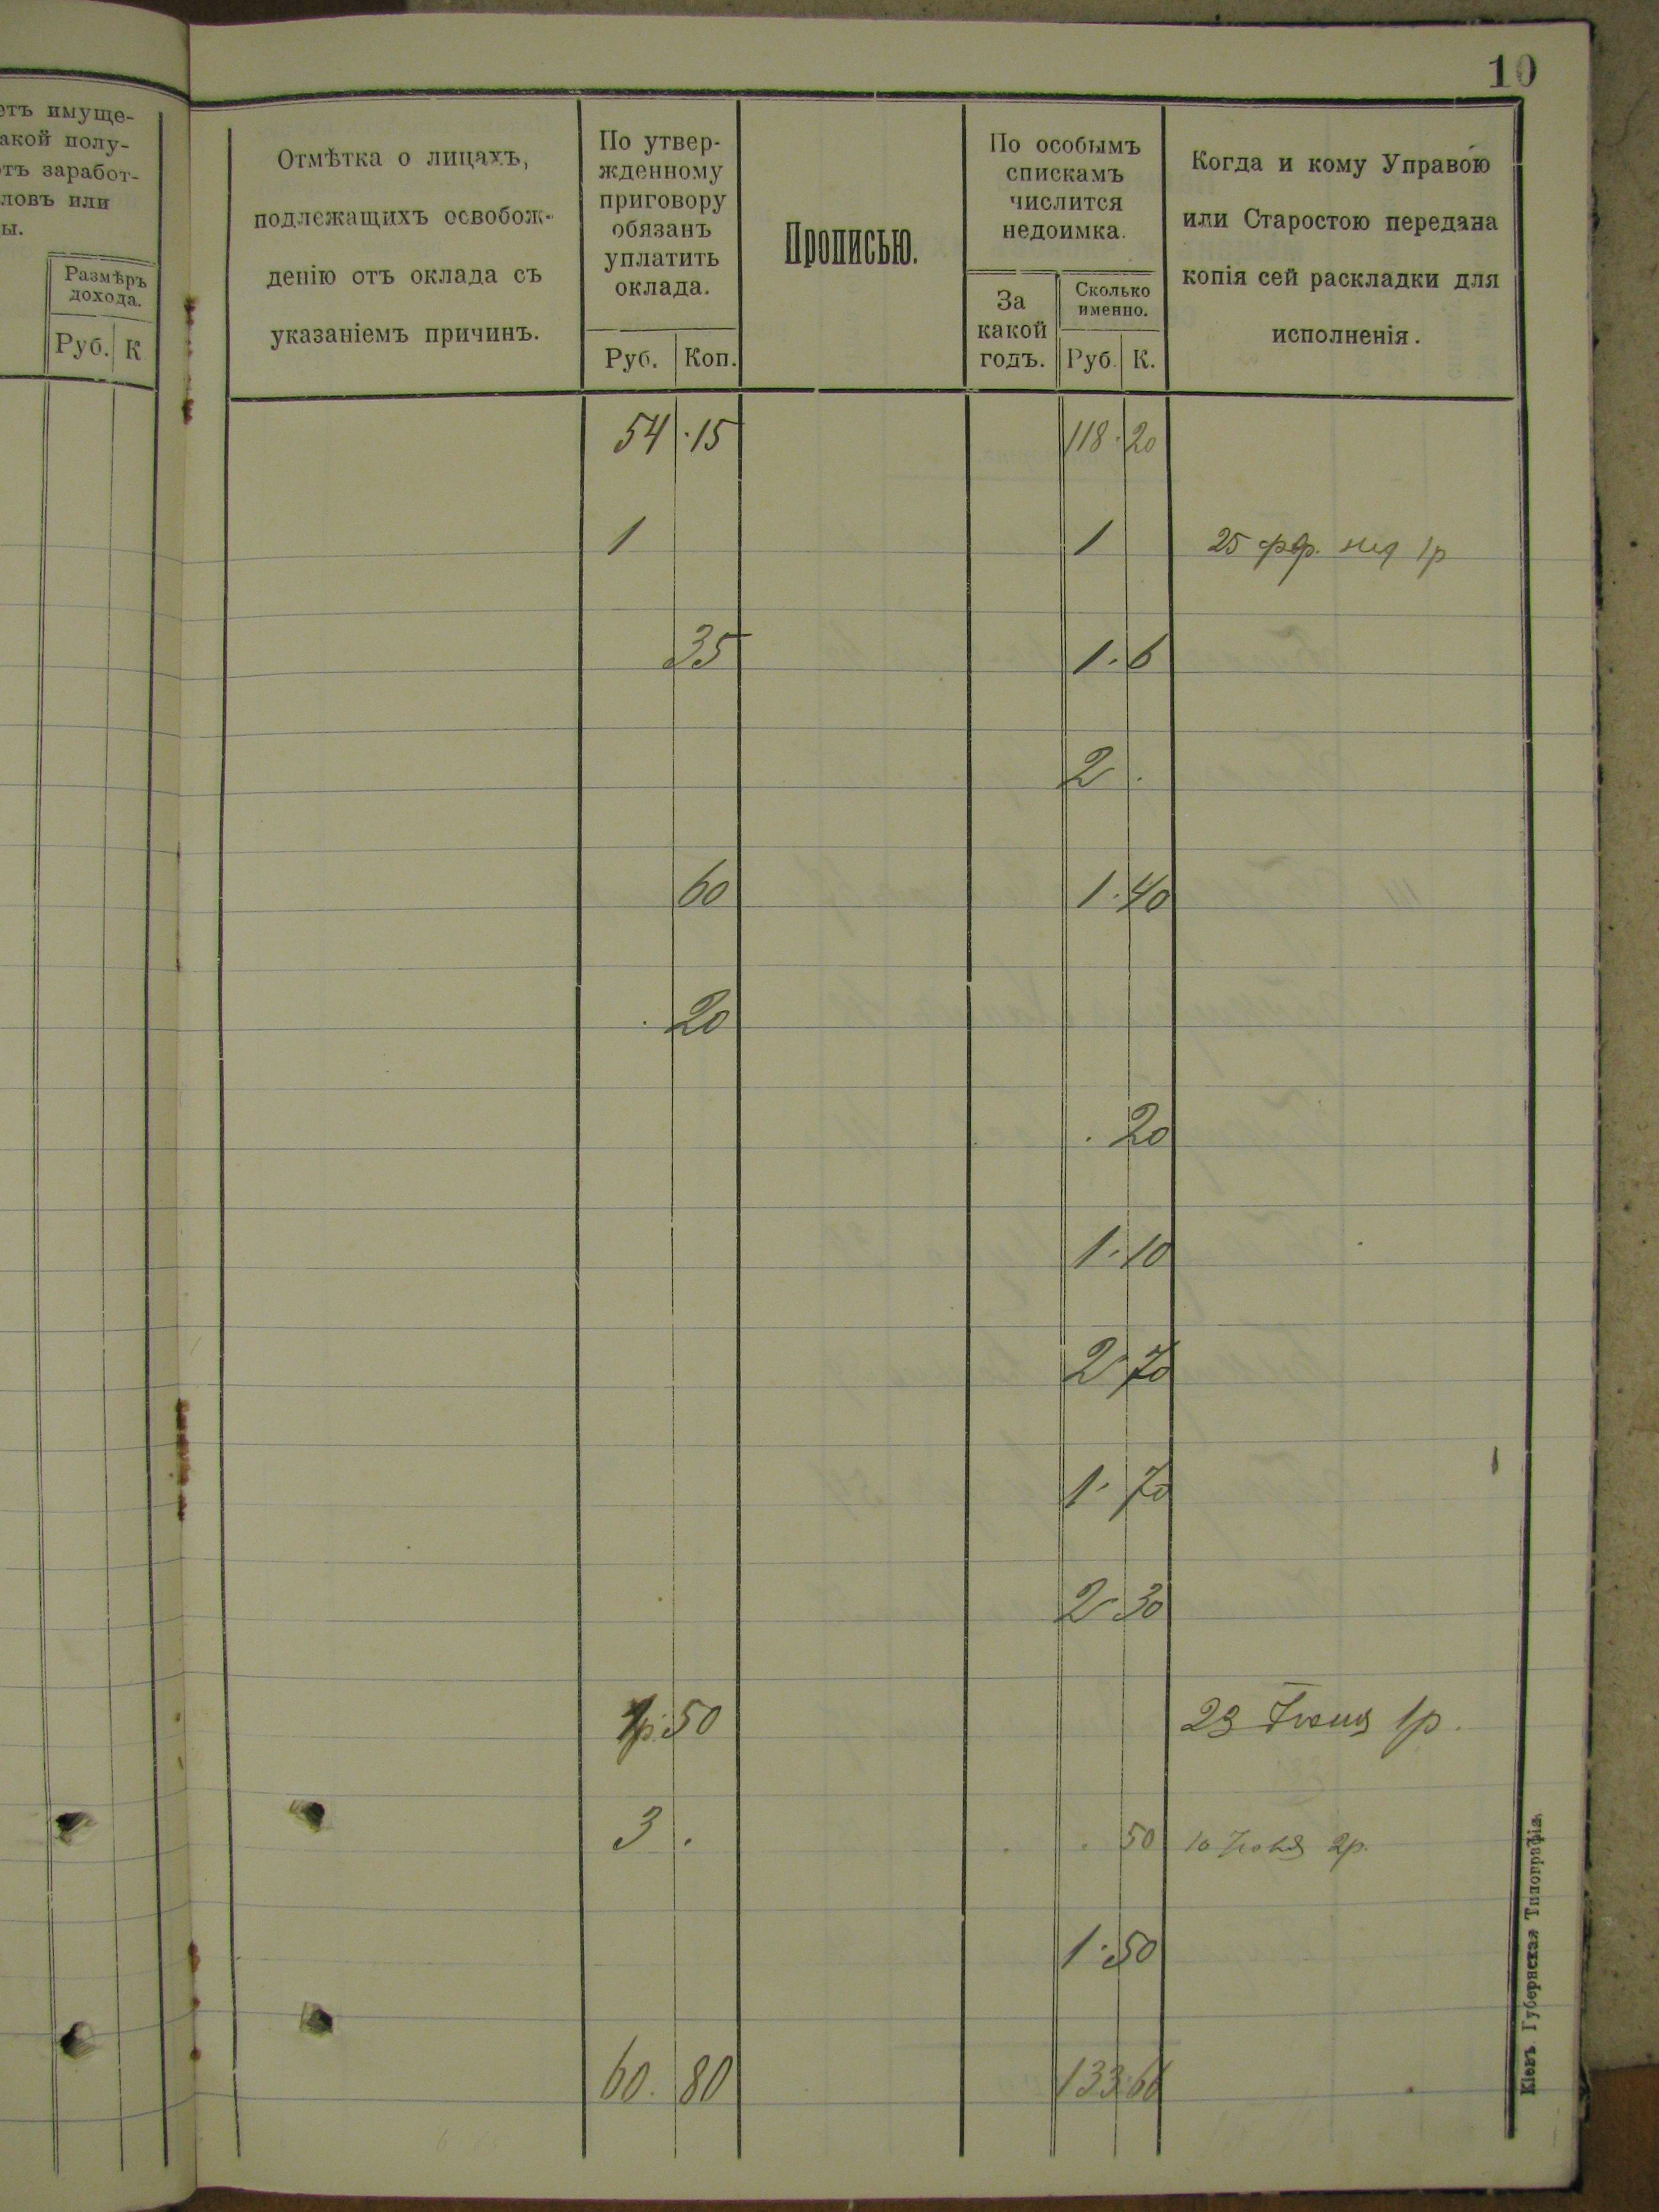 10
етъ имуще-
акой полу-
отъ заработ-
ловъ или
ы.
Размѣръ
дохода.
Руб. К
Отмѣтка о лицахъ,
подлежащихъ освобож-
денію отъ оклада съ
указаніемъ причинъ.
По утвер-
жденному
приговору
обязанъ
уплатить
оклада.
Руб. Коп.
Прописью.
По особымъ
спискамъ
числится
недоимка.
За
какой
годъ.
Сколько
именно.
Руб. К.
Когда и кому Управою
или Старостою передана
копія сей раскладки для
исполненія.
54 . 15 118 . 20
1 1 25 1р
35 1 . 6
2 .
60 1 . 40
. 20
. 20
1 . 10
2 . 70
1 . 70
2 . 30
1р. 50 23 Іюня 1р.
3 . . 50 10 2р.
1 . 50
60 . 80 133 . 66
Кіевъ. Губернская Типографія.